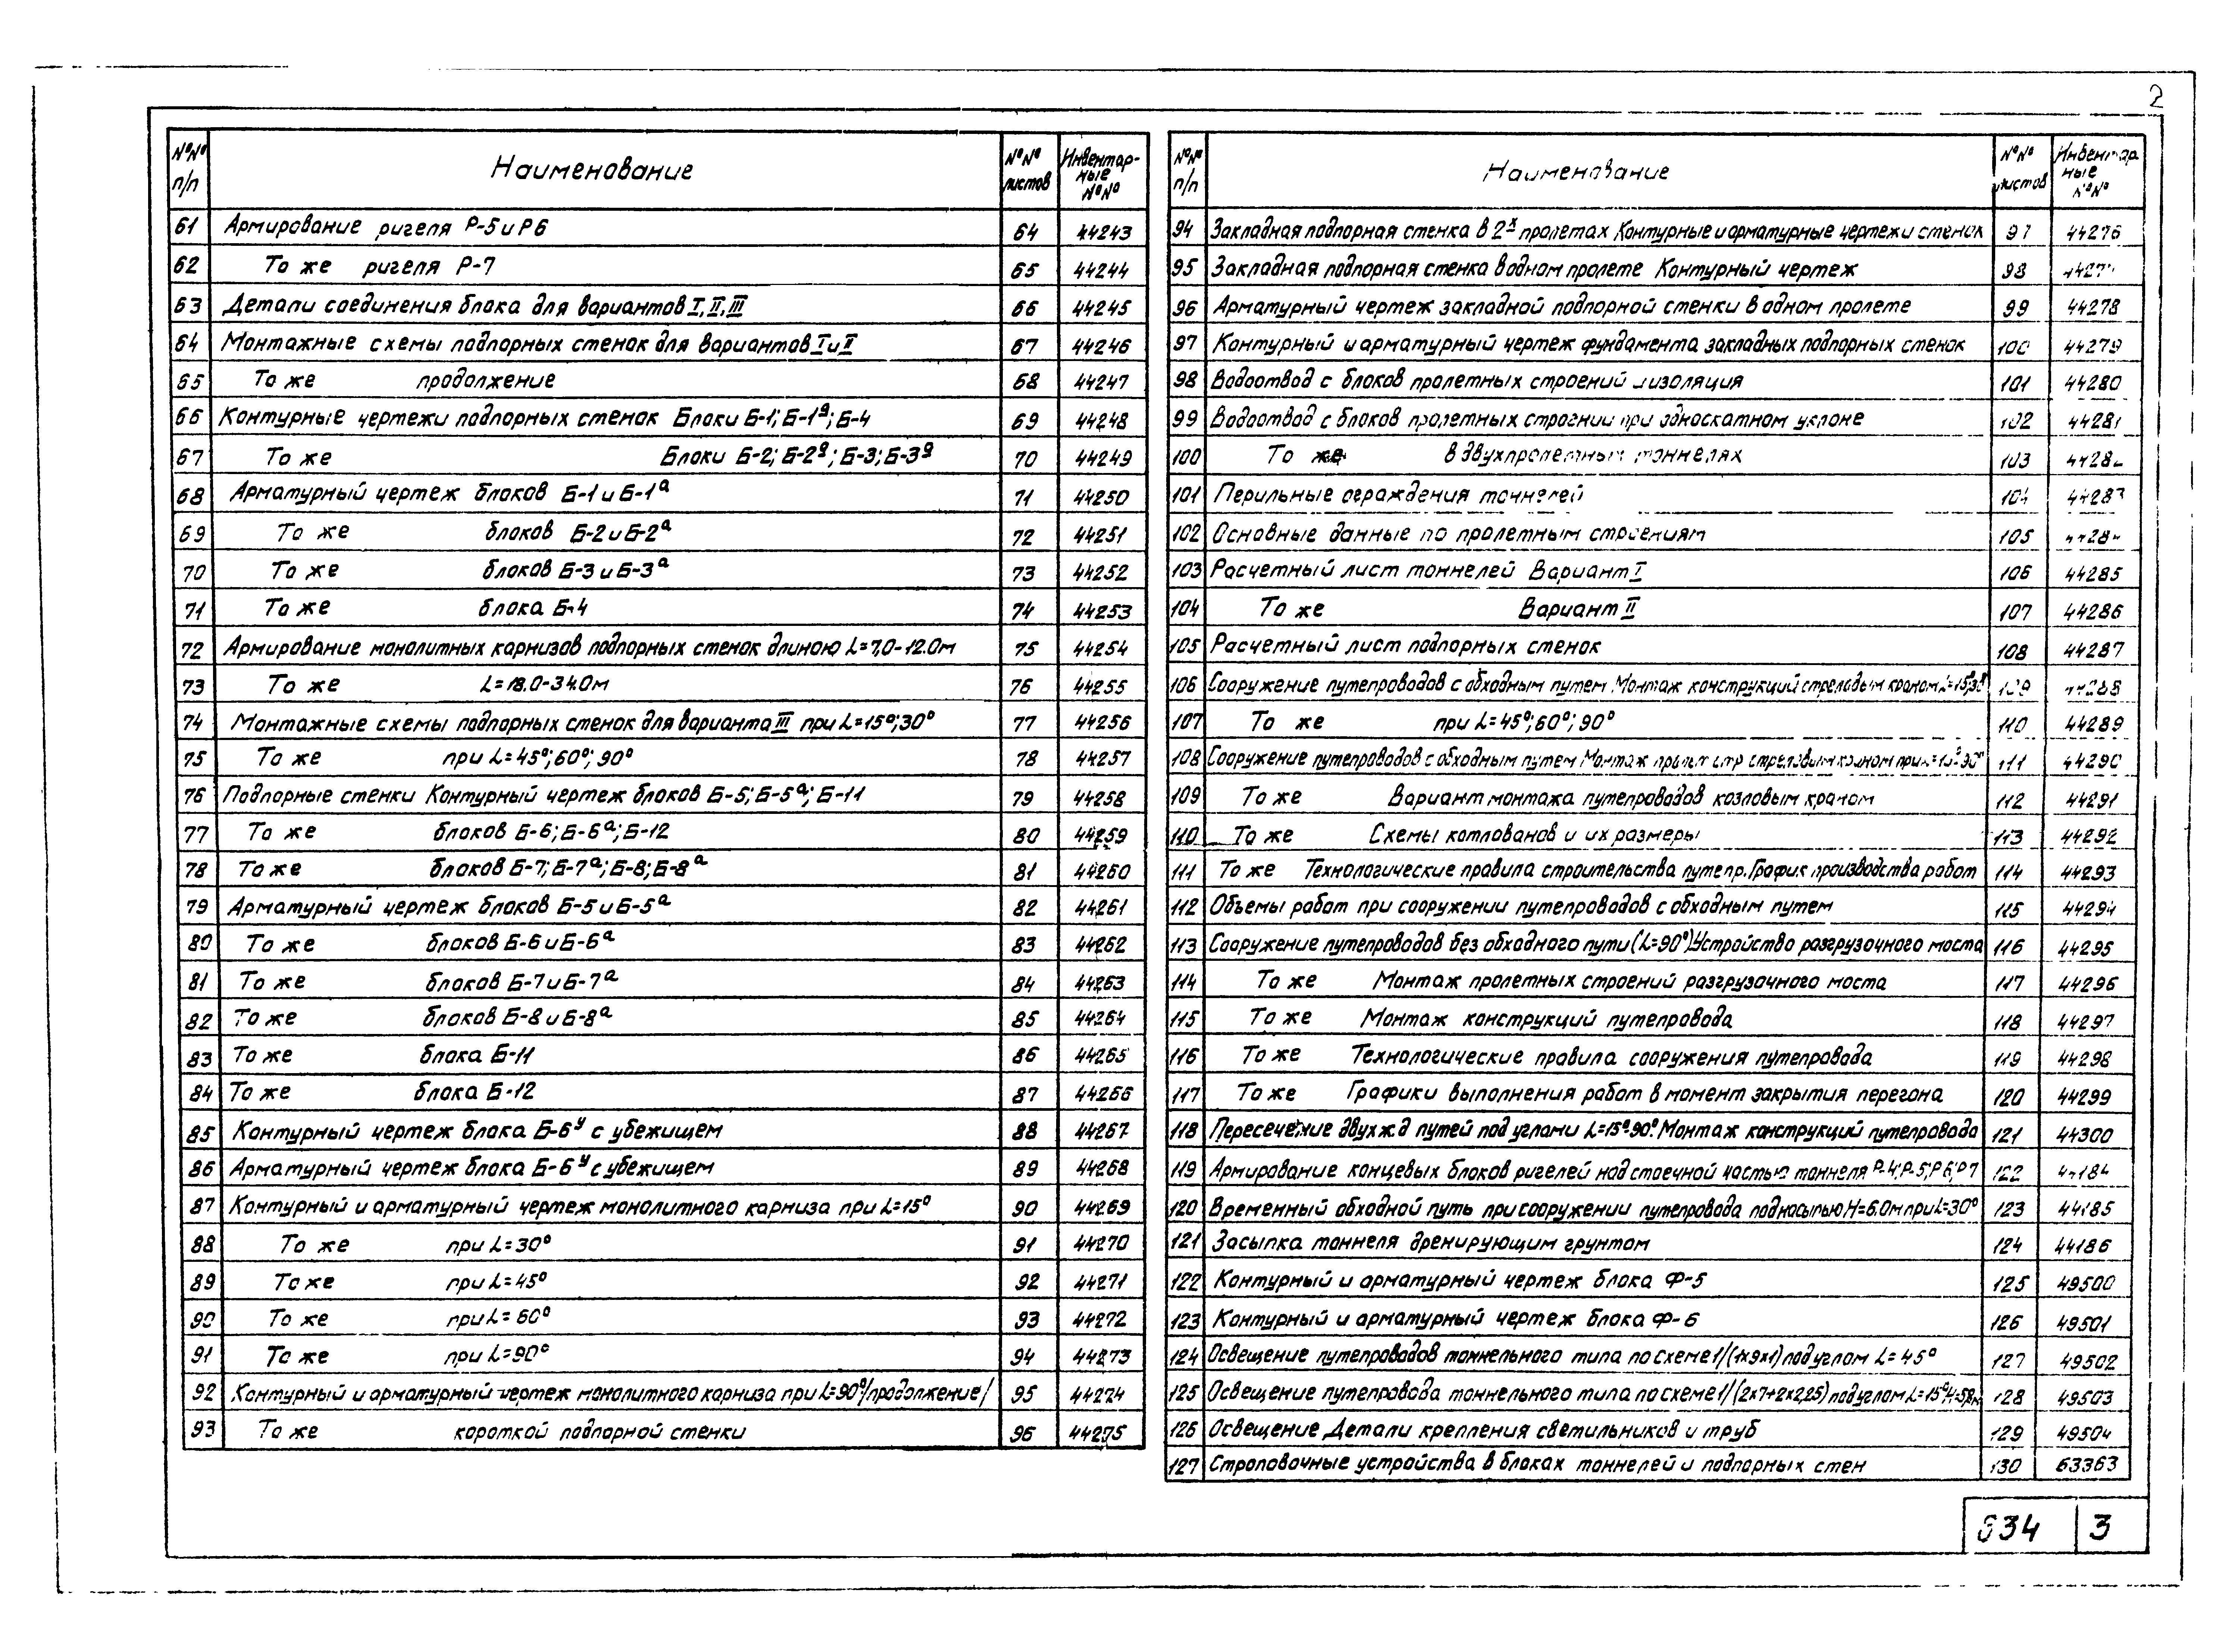 2
№№ п/п Наименование №№ листов Инвентар-ные №№
61 Армирование ригеля Р-5 и Р6 64 44243
62 То же ригеля Р-7 65 44244
63 Детали соединения блока для вариантов I, II, III 66 44245
64 Монтажные схемы подпорных стенок для вариантов I и II 67 44246
65 То же продолжение 68 44247
66 Контурные чертежи подпорных стенок Блоки Б-1; Б-1а; Б-4 69 44248
67 То же Блоки Б-2; Б-2а; Б-3; Б-3а 70 44249
68 Арматурный чертеж блоков Б-1 и Б-1а 71 44250
69 То же блоков Б-2 и Б-2а 72 44251
70 То же блоков Б-3 и Б-3а 73 44252
71 То же блока Б-4 74 44253
72 Армирование монолитных карнизов подпорных стенок длиною L=7,0-12.0м 75 44254
73 То же L=18.0-34.0м 76 44255
74 Монтажные схемы подпорных стенок для варианта III при L=15°; 30° 77 44256
75 То же при L=45°; 60°; 90° 78 44257
76 Подпорные стенки Контурный чертеж блоков Б-5; Б-5а; Б-11 79 44258
77 То же блоков Б-6; Б-6а; Б-12 80 44259
78 То же блоков Б-7; Б-7а; Б-8; Б-8а 81 44260
79 Арматурный чертеж блоков Б-5 и Б-5а 82 44261
80 То же блоков Б-6 и Б-6а 83 44262
81 То же блоков Б-7 и Б-7а 84 44263
82 То же блоков Б-8 и Б-8а 85 44264
83 То же блока Б-11 86 44265
84 То же блока Б-12 87 44266
85 Контурный чертеж блока Б-6у с убежищем 88 44267
86 Арматурный чертеж блока Б-6у с убежищем 89 44268
87 Контурный и арматурный чертеж монолитного карниза при L=15° 90 44269
88 То же при L=30° 91 44270
89 То же при L=45° 92 44271
90 То же при L=60° 93 44272
91 То же при L=90° 94 44273
92 Контурный и арматурный чертеж монолитного карниза при L=90°/продолжение/ 95 44274
93 То же короткой подпорной стенки 96 44275
№№ п/п Наименование №№ листов Инвентар ные №№
94 Закладная подпорная стенка в 2х пролетах Контурные и арматурные чертежи стенок 97 44276
95 Закладная подпорная стенка в одном пролете Контурный чертеж 98
96 Арматурный чертеж закладной подпорной стенки в одном пролете 99 44278
97 Контурный и арматурный чертеж фундамента закладных подпорных стенок 100 44279
98 Водоотвод с блоков пролетных строений изоляция 101 44280
99 Водоотвод с блоков пролетных строений при односкатном уклоне 102 44281
100 То же в двухпролетных тоннелях 103
101 Перильные ограждения тоннелей 104 44283
102 Основные данные по пролетным строениям 105
103 Расчетный лист тоннелей Вариант I 106 44285
104 То же Вариант II 107 44286
105 Расчетный лист подпорных стенок 108 44287
106 Сооружение путепроводов с обходным путем Монтаж конструкций стреловым краном L=15°; 30° 109
107 То же при L=45°; 60°; 90° 110 44289
108 Сооружение путепроводов с обходным путем Монтаж пролет стр стреловым краном при 111 44290
109 То же Вариант монтажа путепроводов козловым краном 112 44291
110 То же Схемы котлованов и их размеры 113 44292
111 То же Технологические правила строительства путепр. График производства работ 114 44293
112 Объемы работ при сооружении путепроводов с обходным путем 115 44294
113 Сооружение путепроводов без обходного пути (L=90°) Устройство разгрузочного моста 116 44295
114 То же Монтаж пролетных строений разгрузочного моста 117 44296
115 То же Монтаж конструкций путепровода 118 44297
116 То же Технологические правила сооружения путепровода 119 44298
117 То же Графики выполнения работ в момент закрытия перегона 120 44299
118 Пересечение двух ж.д путей под углами L=15°-90°. Монтаж конструкций путепровода 121 44300
119 Армирование концевых блоков ригелей над стоечной частью тоннеля Р-4; Р-5; Р6; Р7 122 44184
120 Временный обходной путь при сооружении путепровода под насыпью H=6.0м при L=30° 123 44185
121 Засыпка тоннеля дренирующим грунтом 124 44186
122 Контурный и арматурный чертеж блока Ф-5 125 49500
123 Контурный и арматурный чертеж блока Ф-6 126 49501
124 Освещение путепроводов тоннельного типа по схеме 1/(1х9х1) под углом L=45° 127 49502
125 Освещение путепровода тоннельного типа по схеме 1/(2х7+2х2,25) под углом L=15° 128 49503
126 Освещение Детали крепления светильников и труб 129 49504
127 Строповочные устройства в блоках тоннелей и подпорных стен 130 63363
634 3